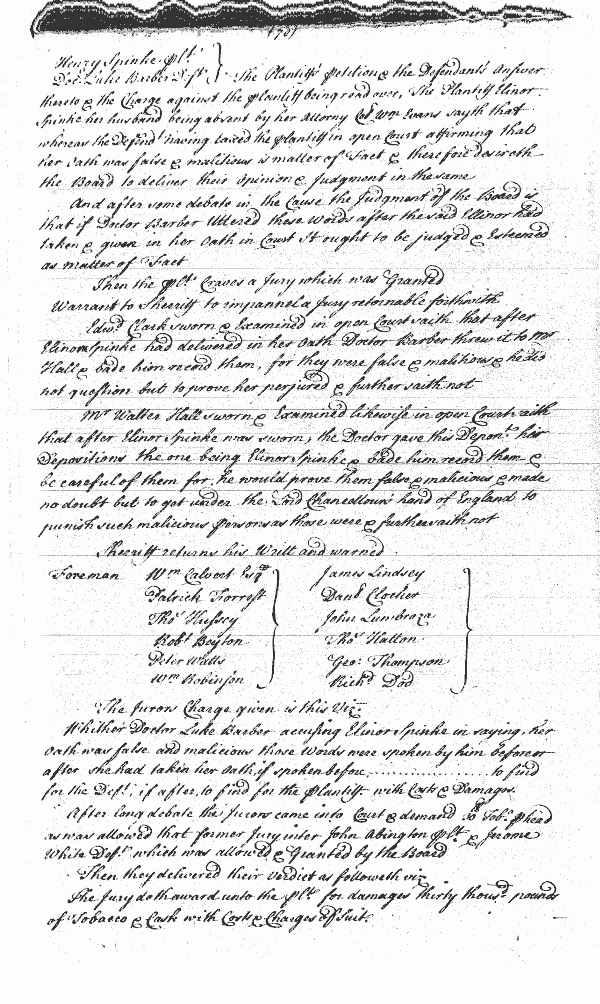 Henry Spinke Plt
Doct Luke Barber Deft } The Plantiffs Petition & the Defendants Answer
thereto & the Charge against the plantiff being read over, The Plantiff Elinor
Spinke her husband being absent by her Attorny Col Wm Evans sayth that
whereas the Defendt having taxed the plantiff in open Court affirming that
her Oath was false & malitious is matter of Fact & therefore desireth
the Board to deliver their Opinion & Judgment in the same
And after some debate in the Cause the Judgment of the Board is
that if Doctor Barber Uttered these words after the said Ellinor had
taken & given in her Oath in Court It ought to be judged & Esteemed
as matter of Fact
Then the Plt Craves a Jury which was Granted
Warrant to Sherriff to impannel a Jury retornable forthwith
Edwd Clark sworn & Examined in open Court saith that after
Elinor Spinke had delivered in her Oath Doctor Barber threw it to Mr
Hall & bade him record them, for they were false & malitious & he did
not question but to prove her perjured & further saith not
Mr Walter Hall sworn & Examined likewise in open Court saith
that after Elinor Spinke was sworn, the Doctor gave this Depont her
Depositions the one being Elinor Spinke & bade him record them &
be careful of them for he would prove them false & malicious & made
no doubt but to get under the Lrd Chanedlours hand of England to
punish such malicious persons as those were & further saith not
Sherriff returns his Writt and warned
Foreman Wm Calvert Esqr James Lindsey
Patrick Forrest Danl Clocher
Thos Hussey John Lumbroza
Robt Beyton Thos Hatton
Peter Watts Geo: Thompson
Wm Robinson Richd Dod
The Jurors Charge given is this Vizt
Whither Doctor Luke Barber accusing Elinor Spinke in saying, her
Oath was false and malicious those words were spoken by him before or
after she had taken her Oath, if spoken before .................. to find
for the Deft, if after, to find for the Plantiff with Costs & Damages.
After long debate the Jurors came into Court & demand 50 lb Tobo P head
as was allowed that former Jury inter John Abington Plt & Jerome
White Deft which was allowed & Granted by the Board
Then they delivered their Verdict as followeth viz
The Jury doth award unto the Plt for damages thirty thousd pounds
of Tobacco & Cask with Costs & Charges of Suit.